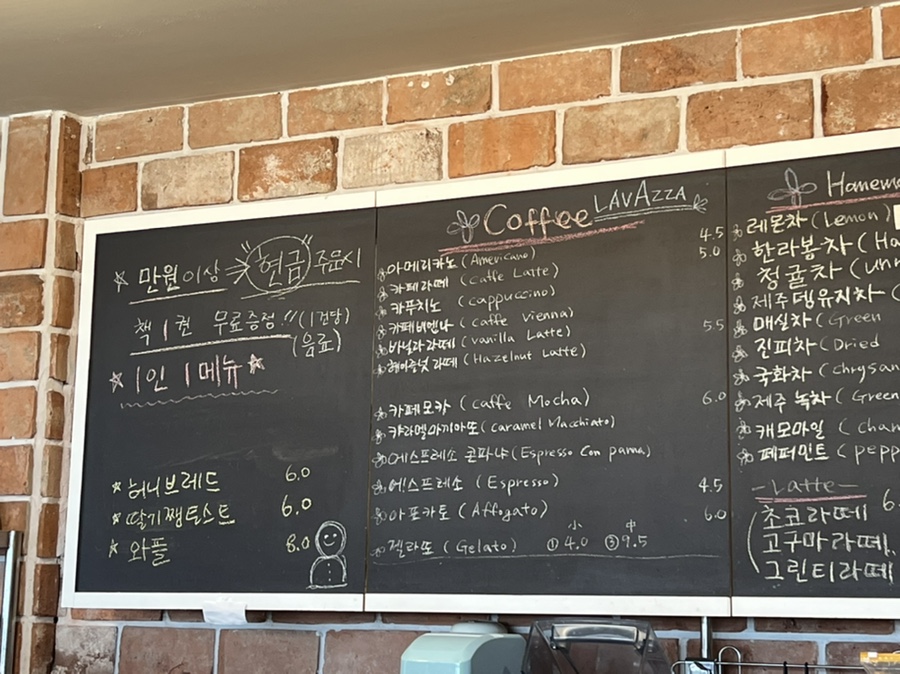 ☆ 만원이상 ⇒ 현금 주문시
책 1권 무료증정!! (1건당)
(음료)
☆ 1인 1메뉴 ☆
☆ 허니브레드 6.0
☆ 딸기쨈토스트 6.0
☆ 와플 8.0
Coffee LAVAZZA
아메리카노 (Americano) 4.5
카페라떼 (Caffe Latte) 5.0
카푸치노 (cappuccino)
카페비엔나 (caffe Vienna)
바닐라라떼 (Vanilla Latte) 5.5
헤이즐넛라떼 (Hazelnut Latte)
카페모카 (caffe Mocha) 6.0
캬라멜마끼아또 (caramel Macchiato)
에스프레소 콘파냐 (Espresso Con pama)
에스프레소 (Espresso) 4.5
아포카토 (Affogato) 6.0
小 中
겔라또 (Gelato) ① 4.0 ③ 9.5
Homem
레몬차 (Lemon)
한라봉차 (Ha
청귤차 (unr
제주댕유지차 (
매실차 (Green
진피차 (Dried
국화차 (chrysan
제주 녹차 (Green
캐모마일 (cham
페퍼민트 (pepp
-Latte-
초코라떼 6.
고구마라떼
그린티라떼